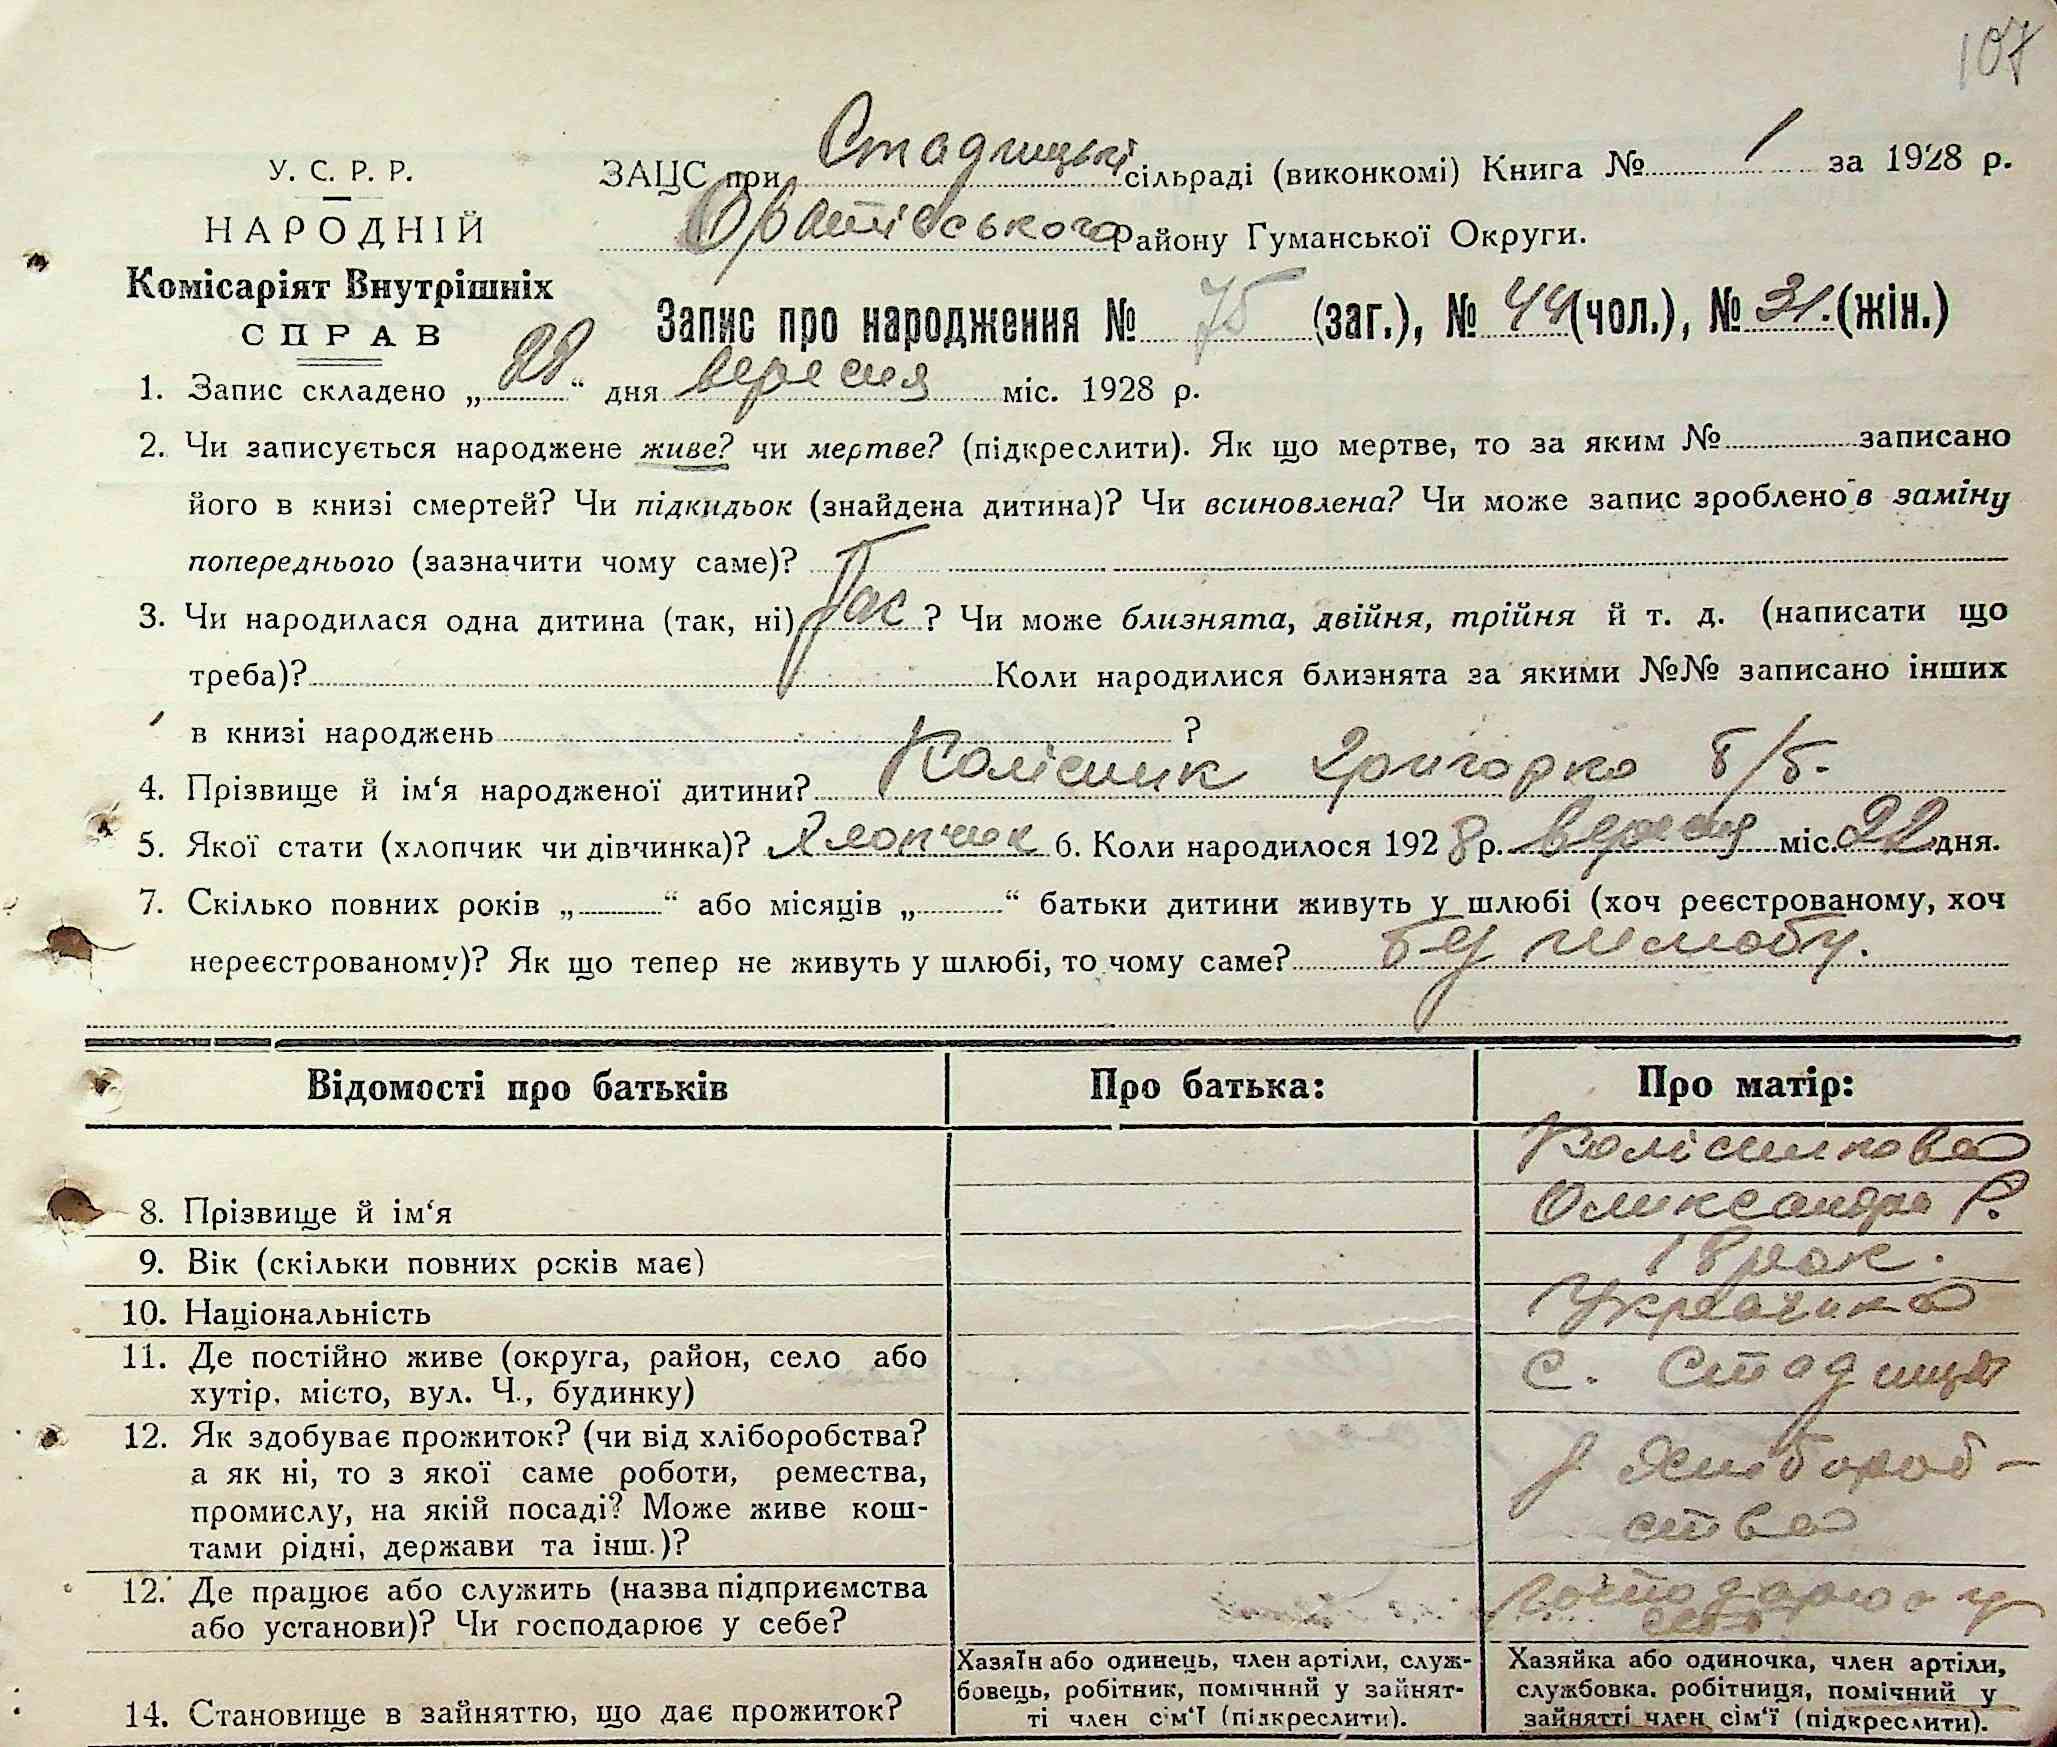 107
У. С. Р. Р.
НАРОДНІЙ
Комісаріят Внутрішніх
СПРАВ
ЗАЦС при Стадницькі сільраді (виконкомі) Книга № 1 за 1928 р.
Оратівського Району Гуманської Округи.
Запис про народження № 75 (заг.), № 44 (чол.), № 31. (жін.)
1. Запис складено „28“ дня вересня міс. 1928 р.
2. Чи записується народжене живе? чи мертве? (підкреслити). Як що мертве, то за яким № записано
його в книзі смертей? Чи підкидьок (знайдена дитина)? Чи всиновлена? Чи може запис зроблено в заміну
попереднього (зазначити чому саме)?
3. Чи народилася одна дитина (так, ні) ? Чи може близнята, двійня, трійня й т. д. (написати що
треба)? Коли народилися близнята за якими №№ записано інших
в книзі народжень ?
4. Прізвище й ім‘я народженої дитини? Колісник Григорко б/б.
5. Якої стати (хлопчик чи дівчинка)? Хлопчик 6. Коли народилося 1928 р. вересня міс. 22 дня.
7. Скілько повних років „ “ або місяців „ “ батьки дитини живуть у шлюбі (хоч реєстрованому, хоч
нереєстрованому)? Як що тепер не живуть у шлюбі, то чому саме? без шлюбу.
Відомості про батьків Про батька: Про матір:
Колісникова
8. Прізвище й ім‘я Олександра Р.
9. Вік (скільки повних рсків має) 18 рок.
10. Національність Українка
11. Де постійно живе (округа, район, село або
хутір, місто, вул. Ч., будинку) с. Стадниця
12. Як здобуває прожиток? (чи від хліборобства?
а як ні, то з якої саме роботи, ремества,
промислу, на якій посаді? Може живе кош-
тами рідні, держави та інш.)?
з хлібороб-
ства
12. Де працює або служить (назва підприємства
або установи)? Чи господарює у себе?
Господарює у
себе
14. Становище в зайняттю, що дає прожиток?
Хазяїн або одинець, член артіли, служ-
бовець, робітник, помічний у зайнят-
ті член сім‘ї (підкреслити).
Хазяйка або одиночка, член артіли,
службовка, робітниця, помічний у
зайнятті член сім‘ї (підкреслити).